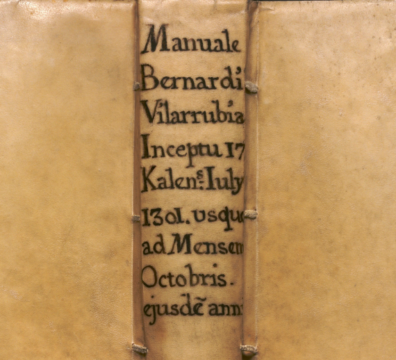 Manuale
Bernardi
Vilarrubia
Inceptu 17
Kalen.s Iuly
1301. usque
ad Mensem
Octobris.
ejusdē ann